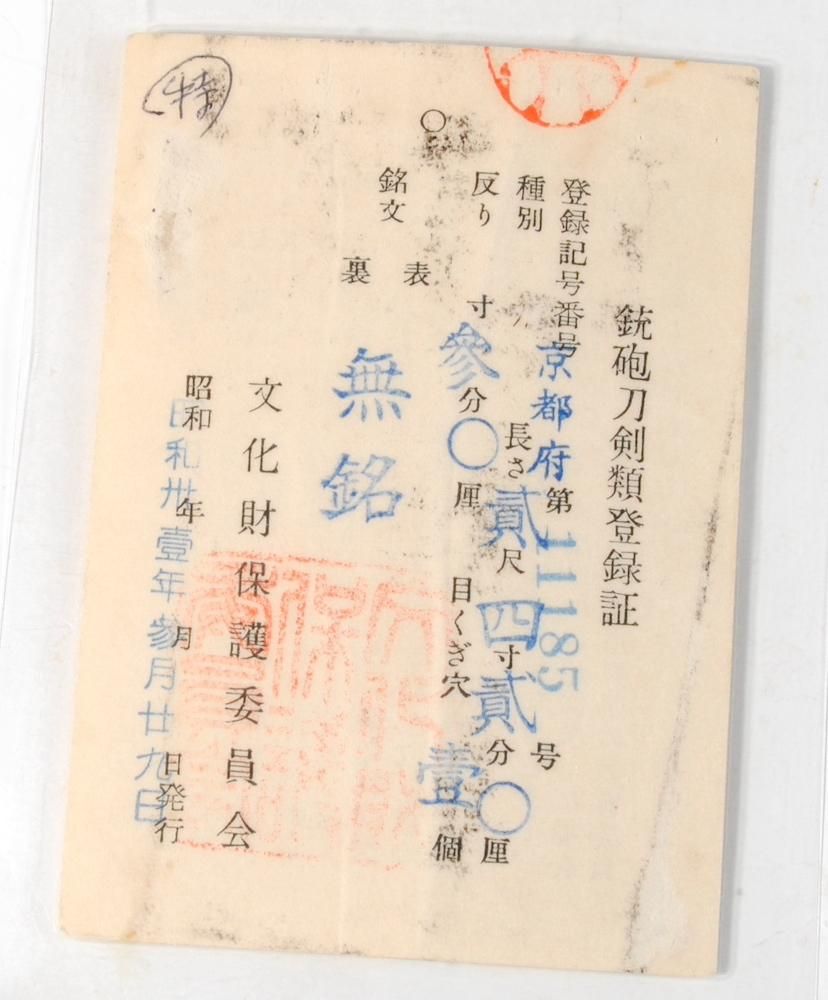 銃砲刀剣類登録証
登録記号番号 京都府 第 11185 号
種別
長さ 貳 尺 四 寸 貳 分 〇 厘
反り 寸 參 分 〇 厘
目くぎ穴 壹 個
〇
銘文
表
裏
無銘
文化財保護委員会
昭和 年 月 日発行
昭和卅壹年參月廿九日
特